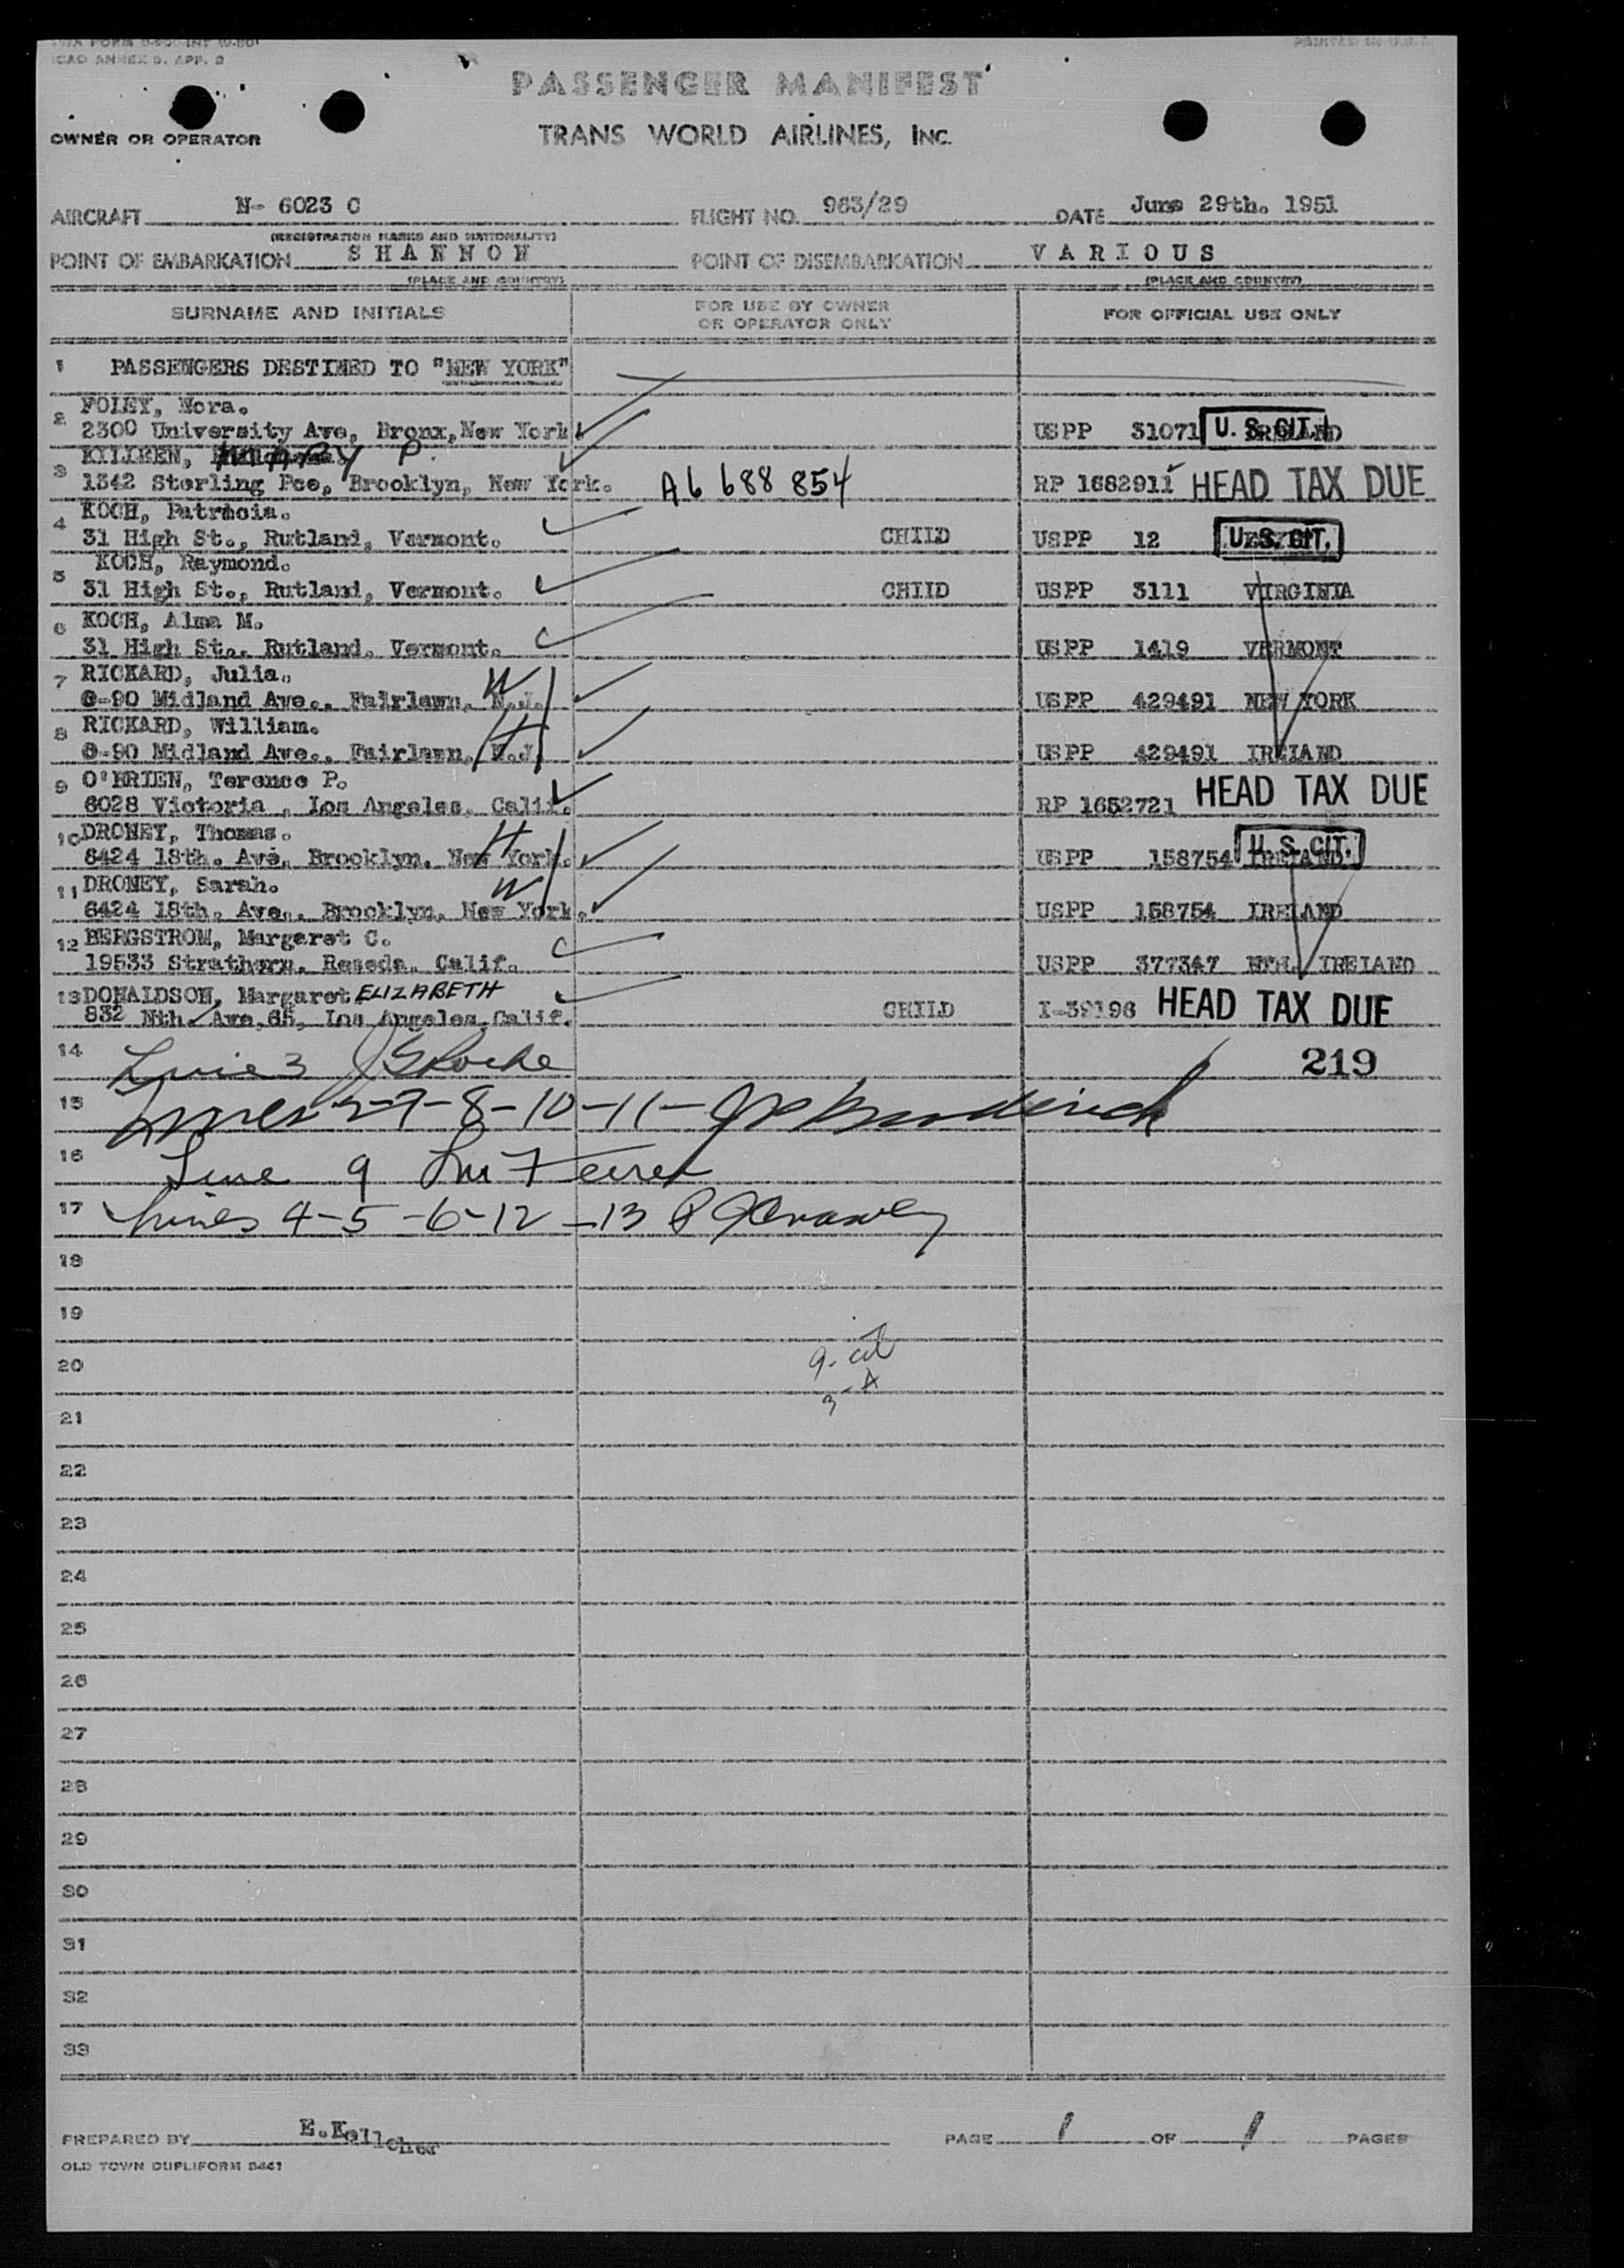 TWA FORM
ICAO ANNEX 9, APP. 2
PRINTED IN U.S.A.
PASSENGER MANIFEST
OWNER OR OPERATOR
TRANS WORLD AIRLINES, INC.
AIRCRAFT N- 6023 C FLIGHT NO. 963/29 DATE June 29th. 1951
(REGISTRATION MARKS AND NATIONALITY)
POINT OF EMBARKATION S H A N N O N POINT OF DISEMBARKATION V A R I O U S
(PLACE AND COUNTRY) (PLACE AND COUNTRY)
SURNAME AND INITIALS FOR USE BY OWNER OR OPERATOR ONLY FOR OFFICIAL USE ONLY
1 PASSENGERS DESTINED TO "NEW YORK"
2 FOLEY, Nora.
2300 University Ave, Bronx, New York USPP 31071 U.S. CIT.
3 KILLEEN, MARY P.
1342 Sterling Pce, Brooklyn, New York. A6 688 854 RP 1682911 HEAD TAX DUE
4 KOCH, Patricia.
31 High St., Rutland, Vermont. CHILD USPP 12 U.S. CIT.
5 KOCH, Raymond.
31 High St., Rutland, Vermont. CHILD USPP 3111 VIRGINIA
6 KOCH, Alma M.
31 High St., Rutland, Vermont. USPP 1419 VERMONT
7 RICKARD, Julia. W
0-90 Midland Ave., Fairlawn, N.J. USPP 429491 NEW YORK
8 RICKARD, William. H
0-90 Midland Ave., Fairlawn, N.J. USPP 429491 IRELAND
9 O'BRIEN, Terence P.
6028 Victoria, Los Angeles, Calif. RP 1652721 HEAD TAX DUE
10 DRONEY, Thomas. H
6424 18th. Ave, Brooklyn, New York. USPP 158754 U.S. CIT. IRELAND
11 DRONEY, Sarah. W
6424 18th. Ave., Brooklyn, New York. USPP 158754 IRELAND
12 BERGSTROM, Margaret C.
19533 Strathern, Reseda, Calif. USPP 377347 NTH. IRELAND
13 DONALDSON, Margaret ELIZABETH
832 Nth. Ave, 65, Los Angeles, Calif. CHILD I-39196 HEAD TAX DUE
14 Line 3 219
15 Lines 2-7-8-10-11-
16 Line 9
17 Lines 4-5-6-12-13
18
19
20 9-cit
3-A
21
22
23
24
25
26
27
28
29
30
31
32
33
PREPARED BY E. Kelleher PAGE 1 OF 1 PAGES
OLD TOWN DUPLIFORM 8441